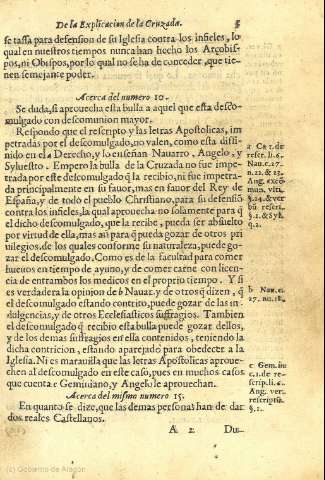 De la Explicacion de la Cruzada. 5
se tassa para defension de su Iglesia contra los infieles, lo
qual en nuestros tiempos nunca han hecho los Arçobis-
pos, ni Obispos, por lo qual no se ha de conceder, que tie-
nen semejante poder.
Acerca del numero 10.
Se duda, si aprouecha esta bulla a aquel que esta desco-
mulgado con descomunion mayor.
Respondo que el rescripto y las letras Apostolicas, im-
petradas por el descomulgado, no valen, como esta diffi-
nido en el a Derecho, y lo enseñan Nauarro, Angelo, y
Syluestro. Empero la bulla de la Cruzada no fue impe-
trada por este descomulgado q̃ la recibio, ni fue impetra-
da principalmente en su fauor, mas en fauor del Rey de
España, y de todo el pueblo Christiano, para su defensiõ
contra los infieles, la qual aprouecha no solamente para q̃
el dicho descomulgado, que la recibe, pueda ser absuelto
por virtud de ella, mas aũ para q̃ pueda gozar de otros pri
uilegios, de los quales conforme su naturaleza, puede go-
zar el descomulgado. Como es de la facultad para comer
hueuos en tiempo de ayuno, y de comer carne con licen-
cia de entrambos los medicos en el proprio tiempo. Y si
es verdadera la opinion de b Nauar. y de otros q̃ dizen, q̃
el descomulgado estando contrito, puede gozar de las in-
dulgencias, y de otros Ecclesiasticos suffragios. Tambien
el descomulgado q̃ recibio esta bulla puede gozar dellos,
y de los demas suffragios en ella contenidos, teniendo la
dicha contricion, estando aparejado para obedecer a la
Iglesia. Ni es marauilla que las letras Apostolicas aproue-
chen al descomulgado en este caso, pues en muchos casos
que cuenta c Geminiano, y Angelo le aprouechan.
Acerca del mismo numero 15.
En quanto se dize, que las demas personas han de dar
dos reales Castellanos.
A 2 Du-
a Ca 1. de
rescr. li. 6.
Nau. c. 27.
n. 22. & 23.
Ang. excõ-
mun. vlti.
§. 24. & ver
bũ rescri.
§. 1. & Syl.
q. 2.
b Nau. c.
27. no. 18.
c Gem. in
c. 1. de re-
scrip. li. 6.
Ang. ver.
rescriptũ.
§. 1.
(c) Gobierno de Aragón